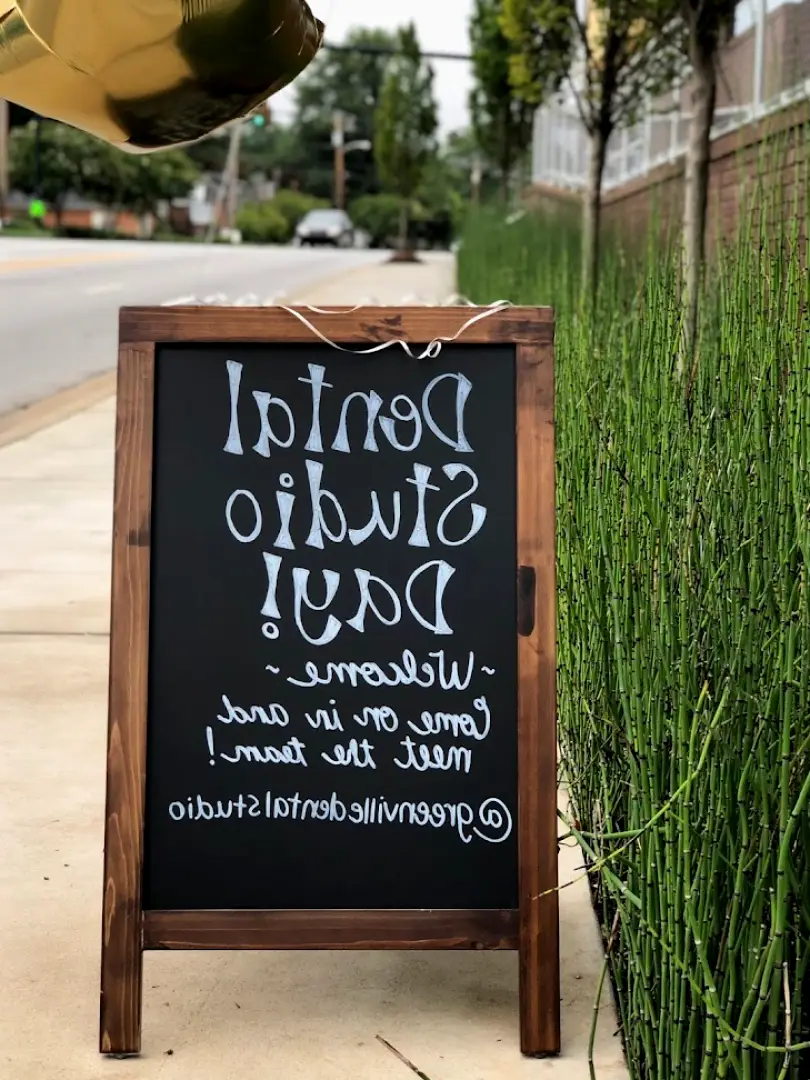 Dental
Studio
Day!
~Welcome~
Come on in and
meet the team!
@greenvilledentalstudio